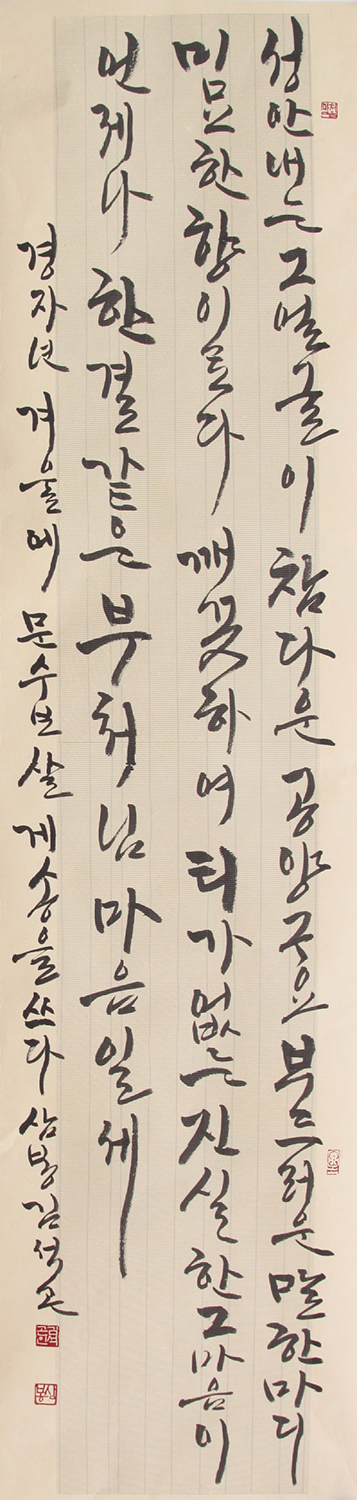 성안내는 그얼굴이 참다운 공양구요 부드러운 말한마디
미묘한 향이로다 깨끗하여 티가없는 진실한 그마음이
언제나 한결같은 부처님 마음일세
경자년 겨울에 문수보살 게송을 쓰다 삼봉